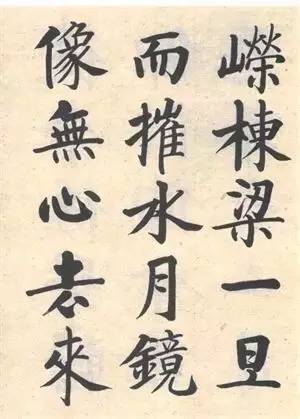 嶸棟梁一旦
而摧水月鏡
像無心去來